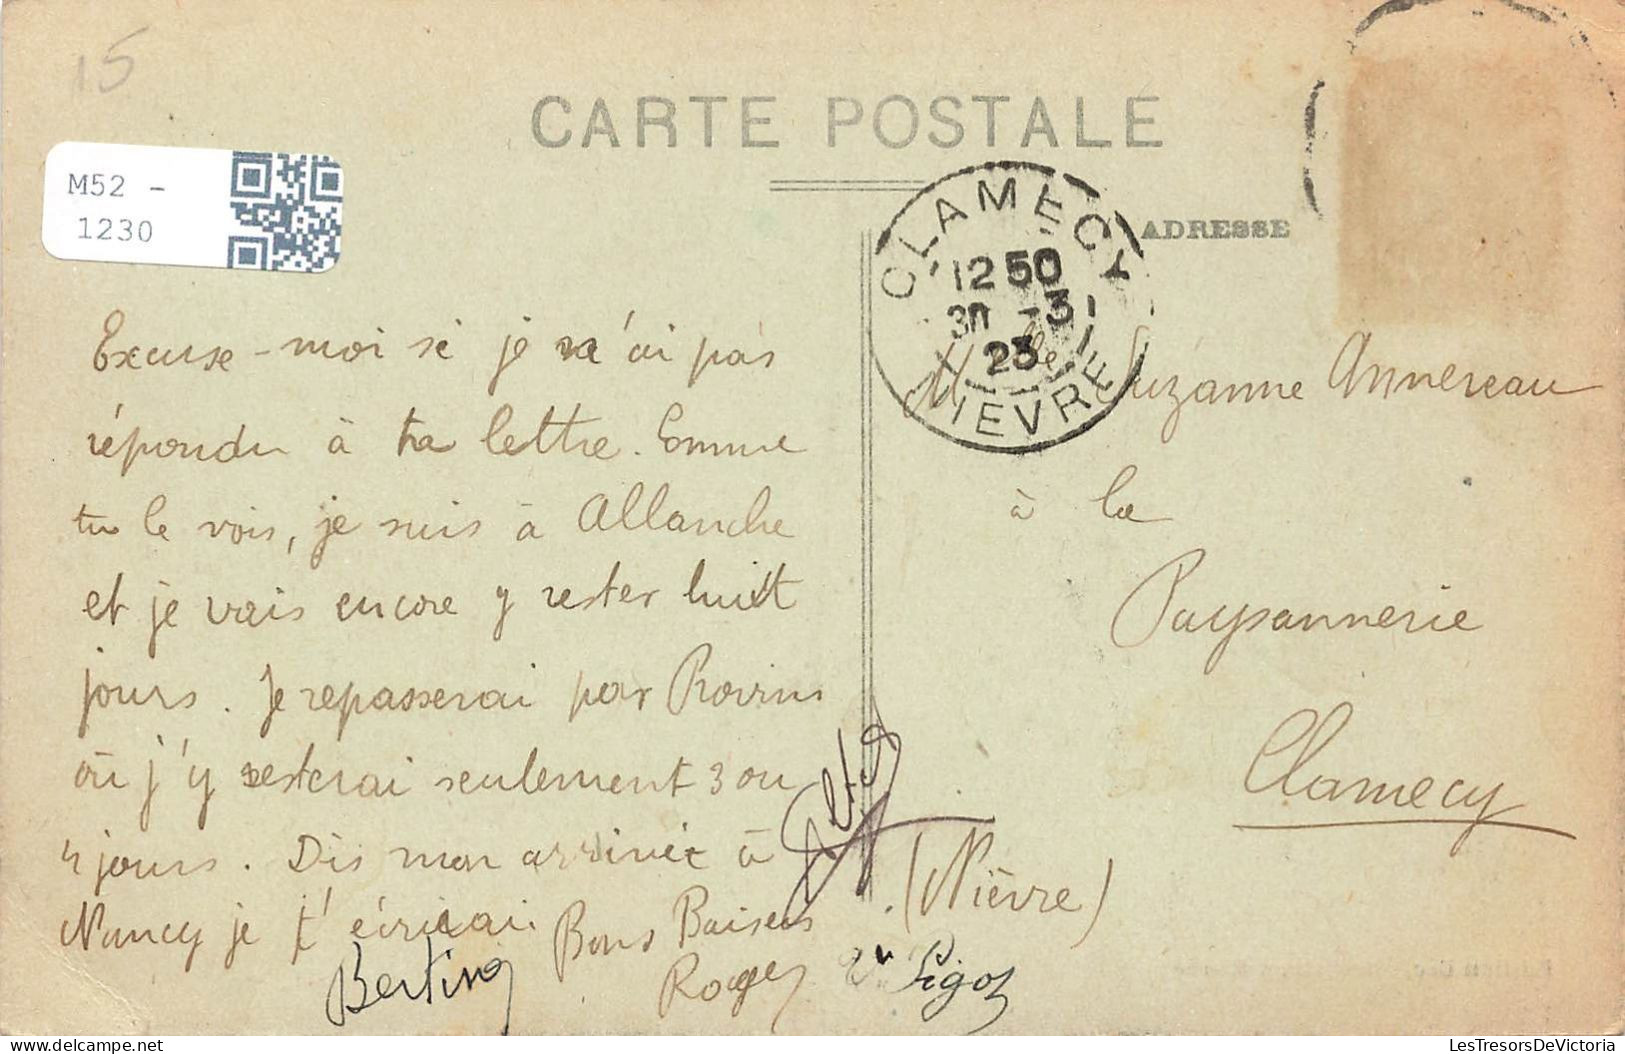 15
CARTE POSTALE
M52 -
1230
CLAMECY
12 50
30 -3
23
NIEVRE
ADRESSE
Excuse-moi si je n'ai pas
répondu à ta lettre. Comme
tu le vois, je suis à Allanche
et je vais encore y rester huit
jours. Je repasserai par Provins
où j'y resterai seulement 3 ou
4 jours. Dès mon arrivée à
Nancy je t'écrirai. Bons Baisers
Roger
Mlle Suzanne Annereau
à la
Paysannerie
Clamecy
(Nièvre)
© delcampe.net
LesTresorsDeVictoria